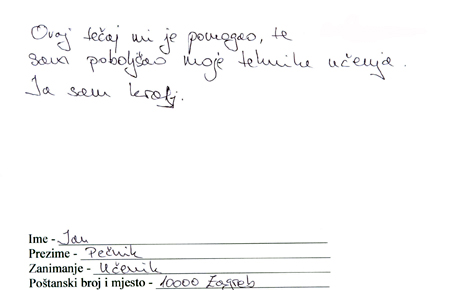 Ovaj tečaj mi je pomogao, te
sam poboljšao moje tehnike učenja.
Ja sam kralj.
Ime - Jan
Prezime - Pečnik
Zanimanje - Učenik
Poštanski broj i mjesto - 10000 Zagreb